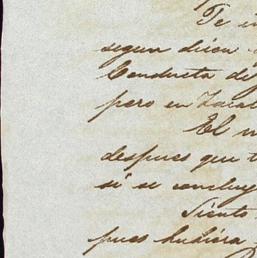 Te i
segun dicen
Conducta de
pero en Zacat
El m
despues que t
si se concluy
Siento
pues hubiera